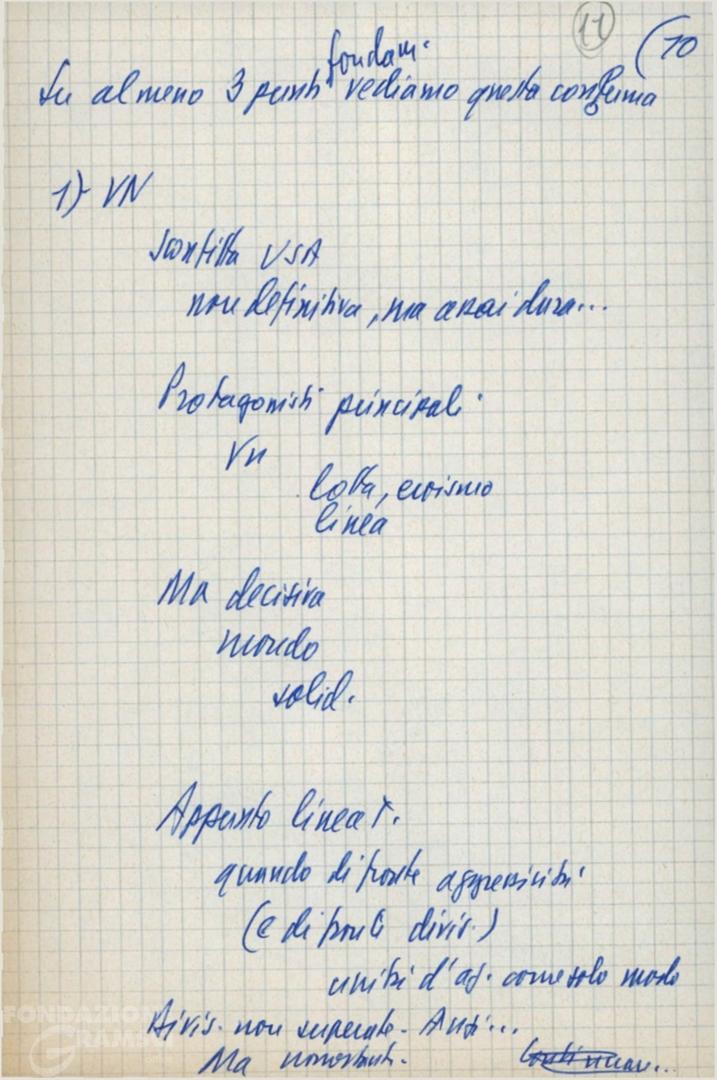 11 (10
fondam.
Su almeno 3 punti vediamo questa conferma
1) VN
Sconfitta USA
non definitiva, ma assai dura...
Protagonisti principali.
Vn
lotta, eroismo
linea
Ma decisiva
mondo
solid.
Appunto linea T.
quando di fronte aggressività
(e di fronte divis.)
unità d'az. come solo modo
Divis. non superate. Anzi...
Ma nonostante.
Continuare...
FONDAZIONE
GRAMSCI